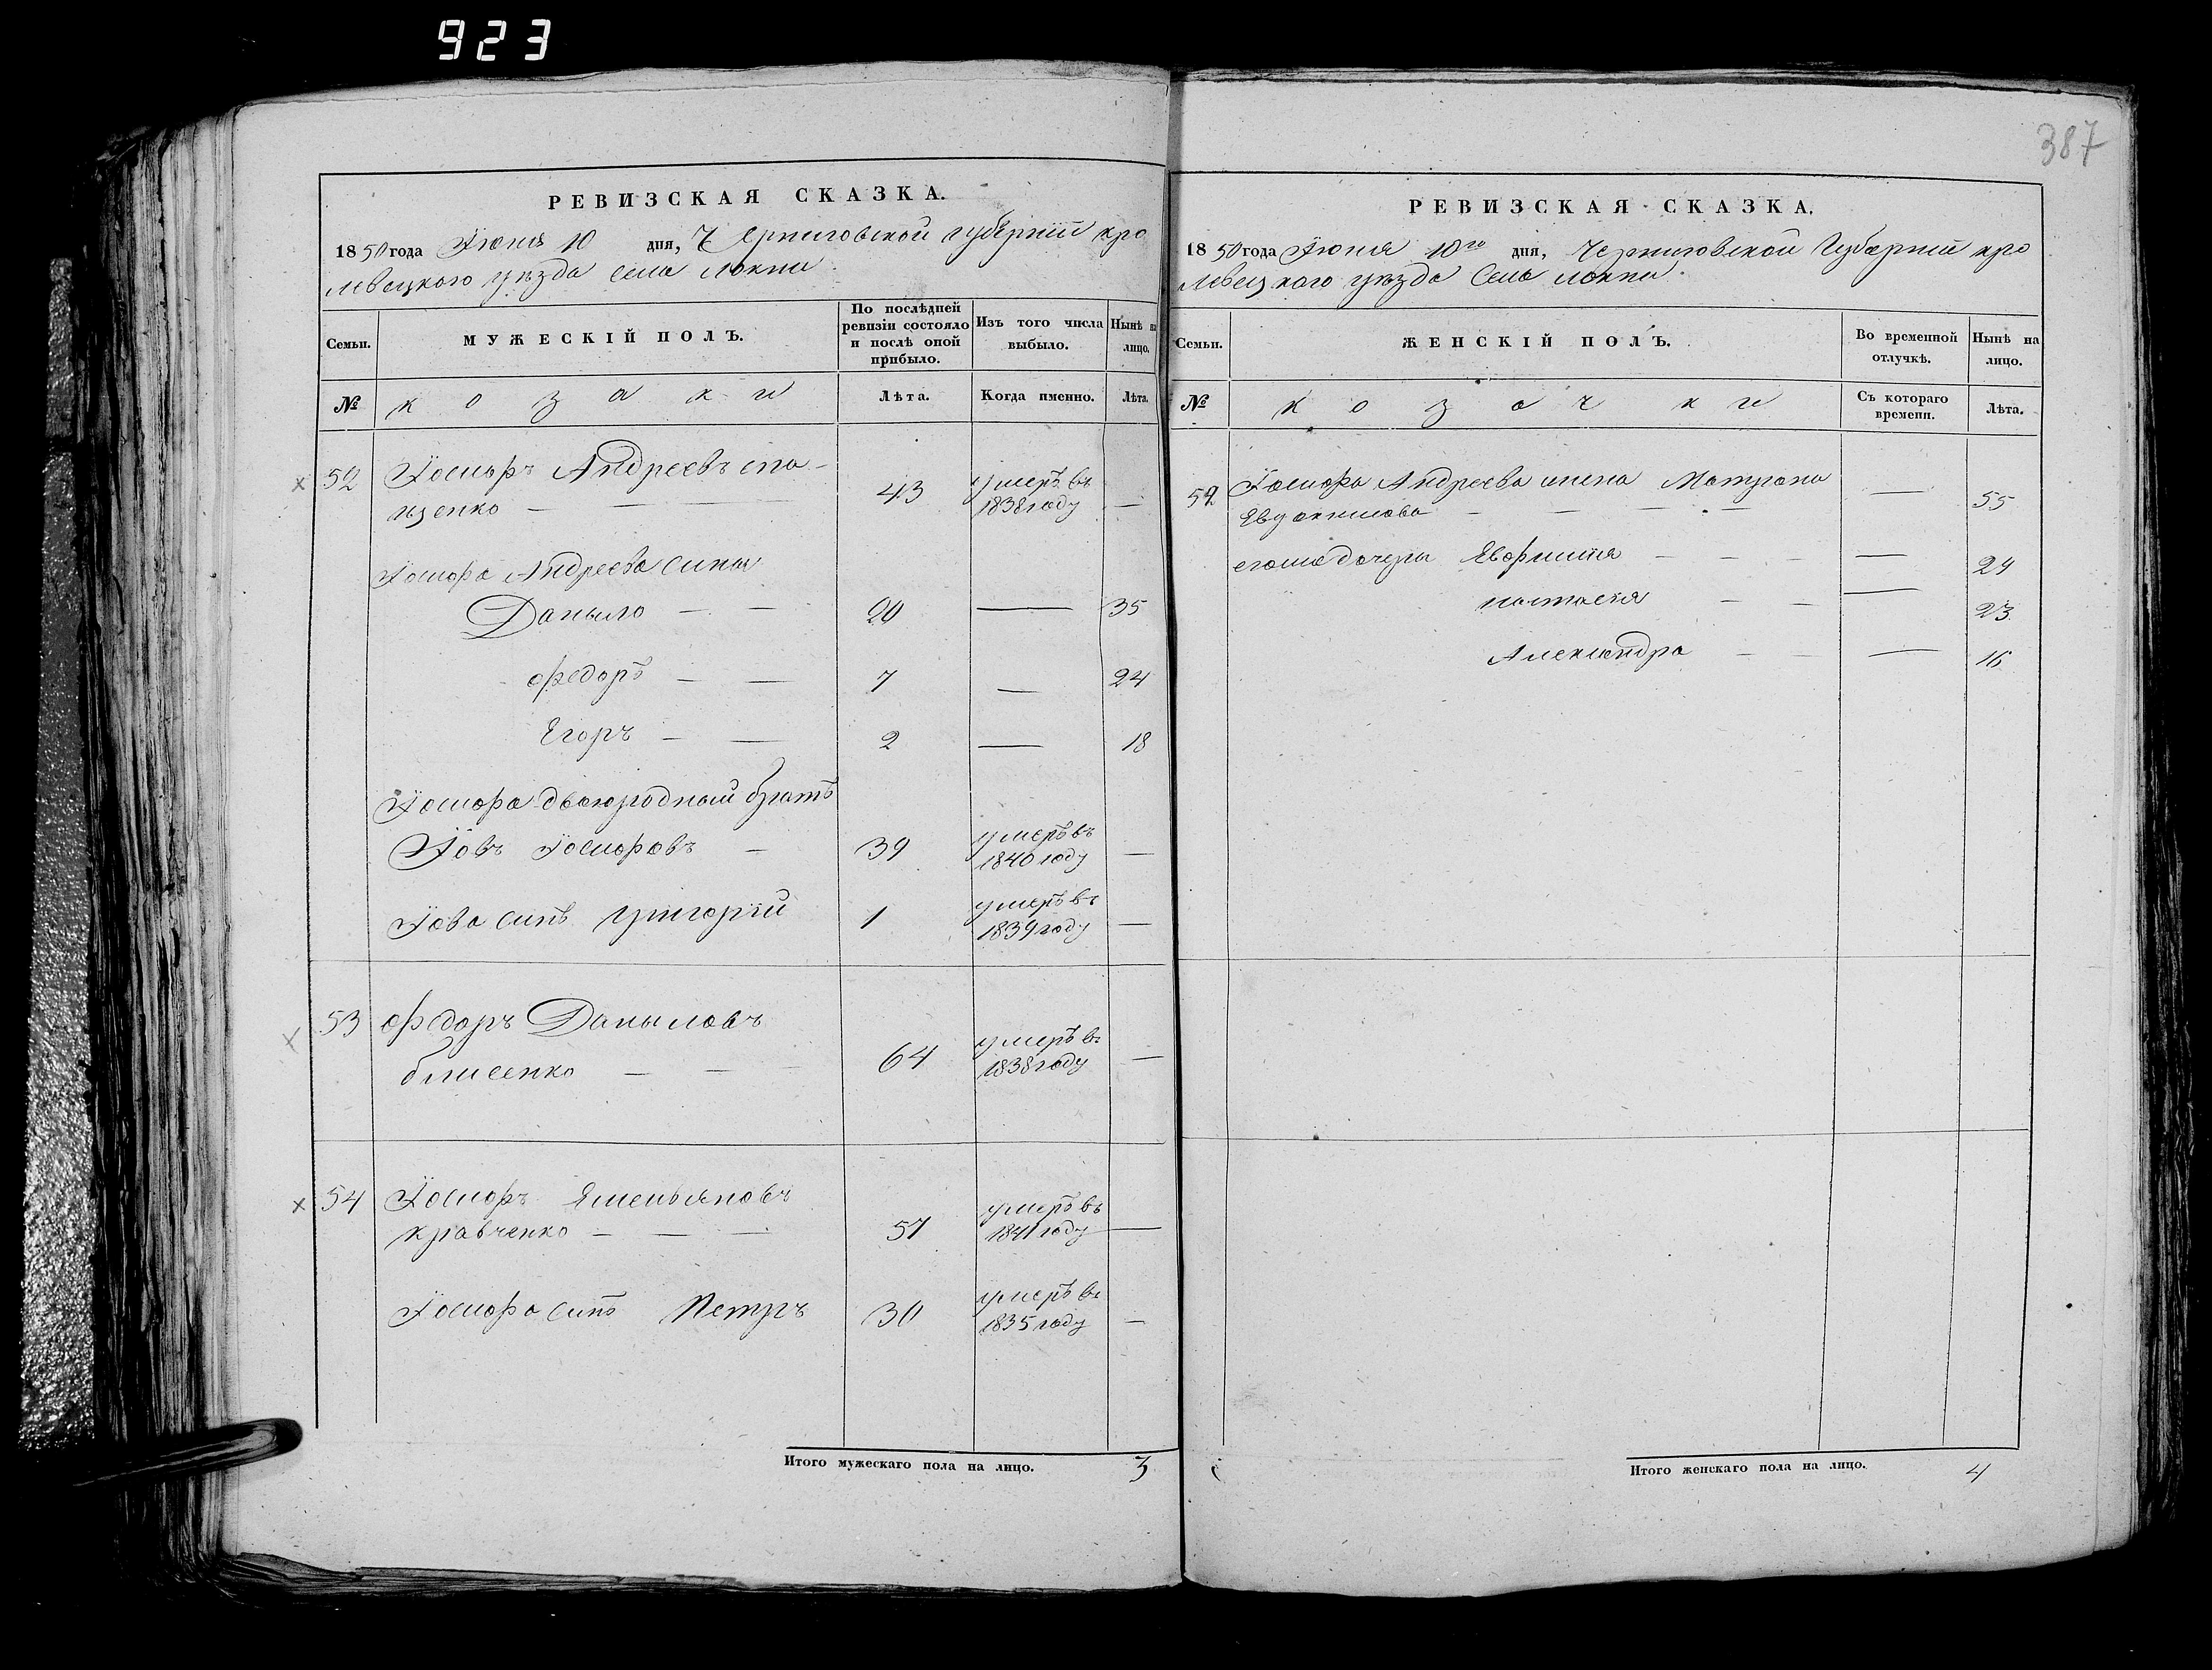 923
387
РЕВИЗСКАЯ СКАЗКА.
1850 года Іюня 10 дня, Черниговской губерніи кро
левецкого уѣзда села локни
Семьи.
МУЖЕСКІЙ ПОЛЪ.
По послѣдней ревизіи состояло и послѣ оной прибыло.
Изъ того числа выбыло.
Нынѣ на лицо.
№
козаки
Лѣта.
Когда именно.
Лѣта.
52 Іосифъ Андреевъ
43 умеръ въ 1838 году —
Іосифа Андреева сины
Даныло — — 20 — 35
Федоръ — — 7 — 24
Егоръ — — 2 — 18
Іосифа двоюродный братъ
Іовъ Іосифовъ — 39 умеръ въ 1840 году —
Іова синъ григорій 1 умеръ въ 1839 году —
53 Федоръ Даныловъ
блисенко — — — 64 умеръ въ 1838 году —
54 Іосифъ Емельяновъ
кравченко — — — 57 умеръ въ 1841 году —
Іосифа синъ Петръ 30 умеръ въ 1835 году —
Итого мужескаго пола на лицо. 3
РЕВИЗСКАЯ СКАЗКА.
1850 года Іюня 10го дня, Черниговской Губерніи кро
левецкого уѣзда Села локни
Семьи.
ЖЕНСКІЙ ПОЛЪ.
Во временной отлучкѣ.
Нынѣ на лицо.
№
козачки
Съ котораго времени.
Лѣта.
52 Іосифа Андреева жена Матрона
Евдокимова — — — — — 55
егоже дочеры Евфимія — — — — 24
настасія — — — 23
Александра — — — 16
Итого женскаго пола на лицо. 4